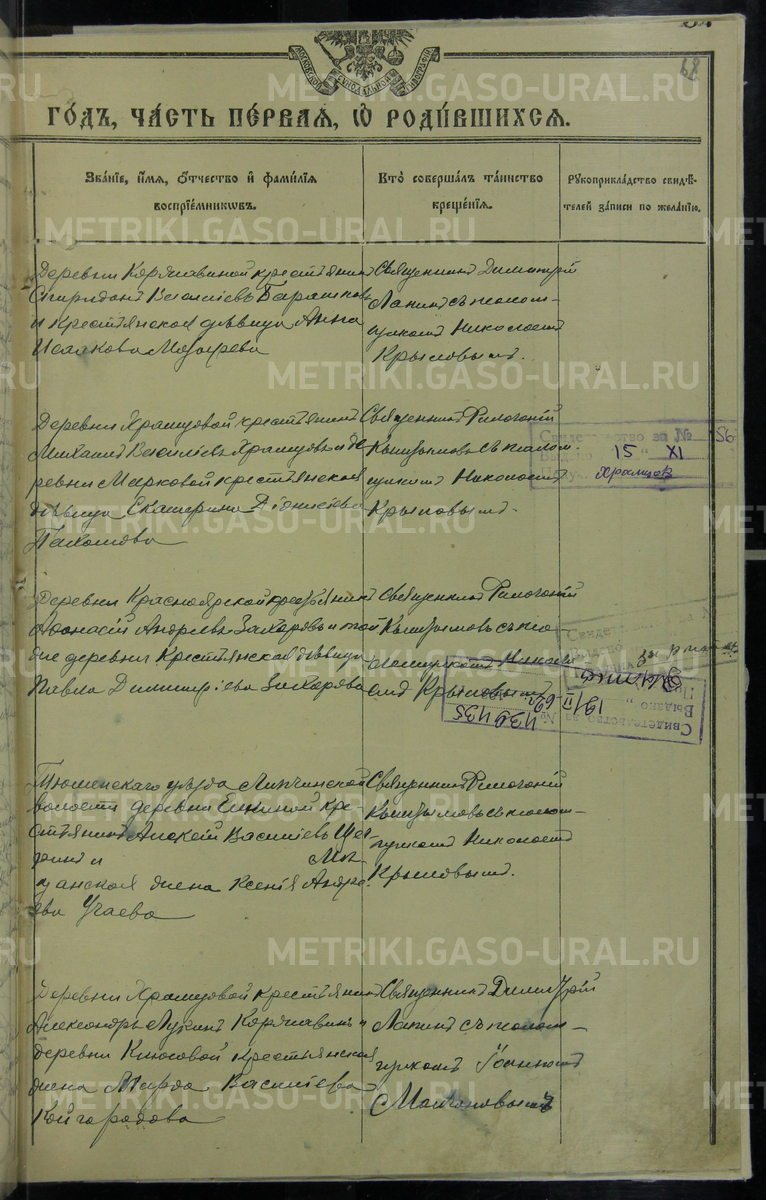 68
МОСКОВСКОЙ СѴНОДАЛЬНОЙ ТИПОГРАФІИ
ГО́ДЪ, ЧА́СТЬ ПЕ́РВАѦ, Ѡ҆ РОДИ́ВШИХСѦ.
Зва́нїе, и҆́мѧ, ѻ҆́тчество и҆ фами́лїѧ
воспрїе́мниковъ.
Кто̀ соверша́лъ та́инство
креще́нїѧ.
Рꙋкоприкла́дство свидѣ́-
телей за́писи по жела́нїю.
Деревни Корявиной крестьянинъ
Спиридонъ Василіевъ Барашков
и крестьянская дѣвица Анна
Исаакова
Священникъ Димитрій
Лапинъ съ псалом-
щикомъ Николаемъ
Крыловымъ.
Деревни Храмцовой крестьянинъ
Михаилъ Василіевъ Храмцовъ и де
ревни Марковой крестьянская
дѣвица Екатерина Діонисіева
Пахомова
Священникъ
съ псалом-
щикомъ Николаемъ
Крыловымъ.
Свидетельство за № 56
15 " XI
Храмцов
Деревни Красноярской крестьянинъ
Афанасій Андреевъ Захаровъ и той
же деревни крестьянская дѣвица
Павла Димитріева Захарова
Священникъ
съ пса-
ломщикомъ Никола
емъ Крыловымъ
Свидетельство за №
Выдано
19/II
Тюменскаго уѣзда Липчинской
волости деревни Ешкиной кре-
стьянинъ Алексій Василіевъ
и
щанская жена Ксенія Андре
ева Угаева
Священникъ
съ псалом-
щикомъ Николаемъ
Крыловымъ.
Деревни Храмцовой крестьянинъ
Александръ Лукинъ Корявинъ и
деревни Клюсовой крестьянская
жена Марѳа Василіева
Кайгородова
Священникъ Димитрій
Лапинъ съ псалом-
щикомъ Іоанномъ
METRIKI.GASO-URAL.RU